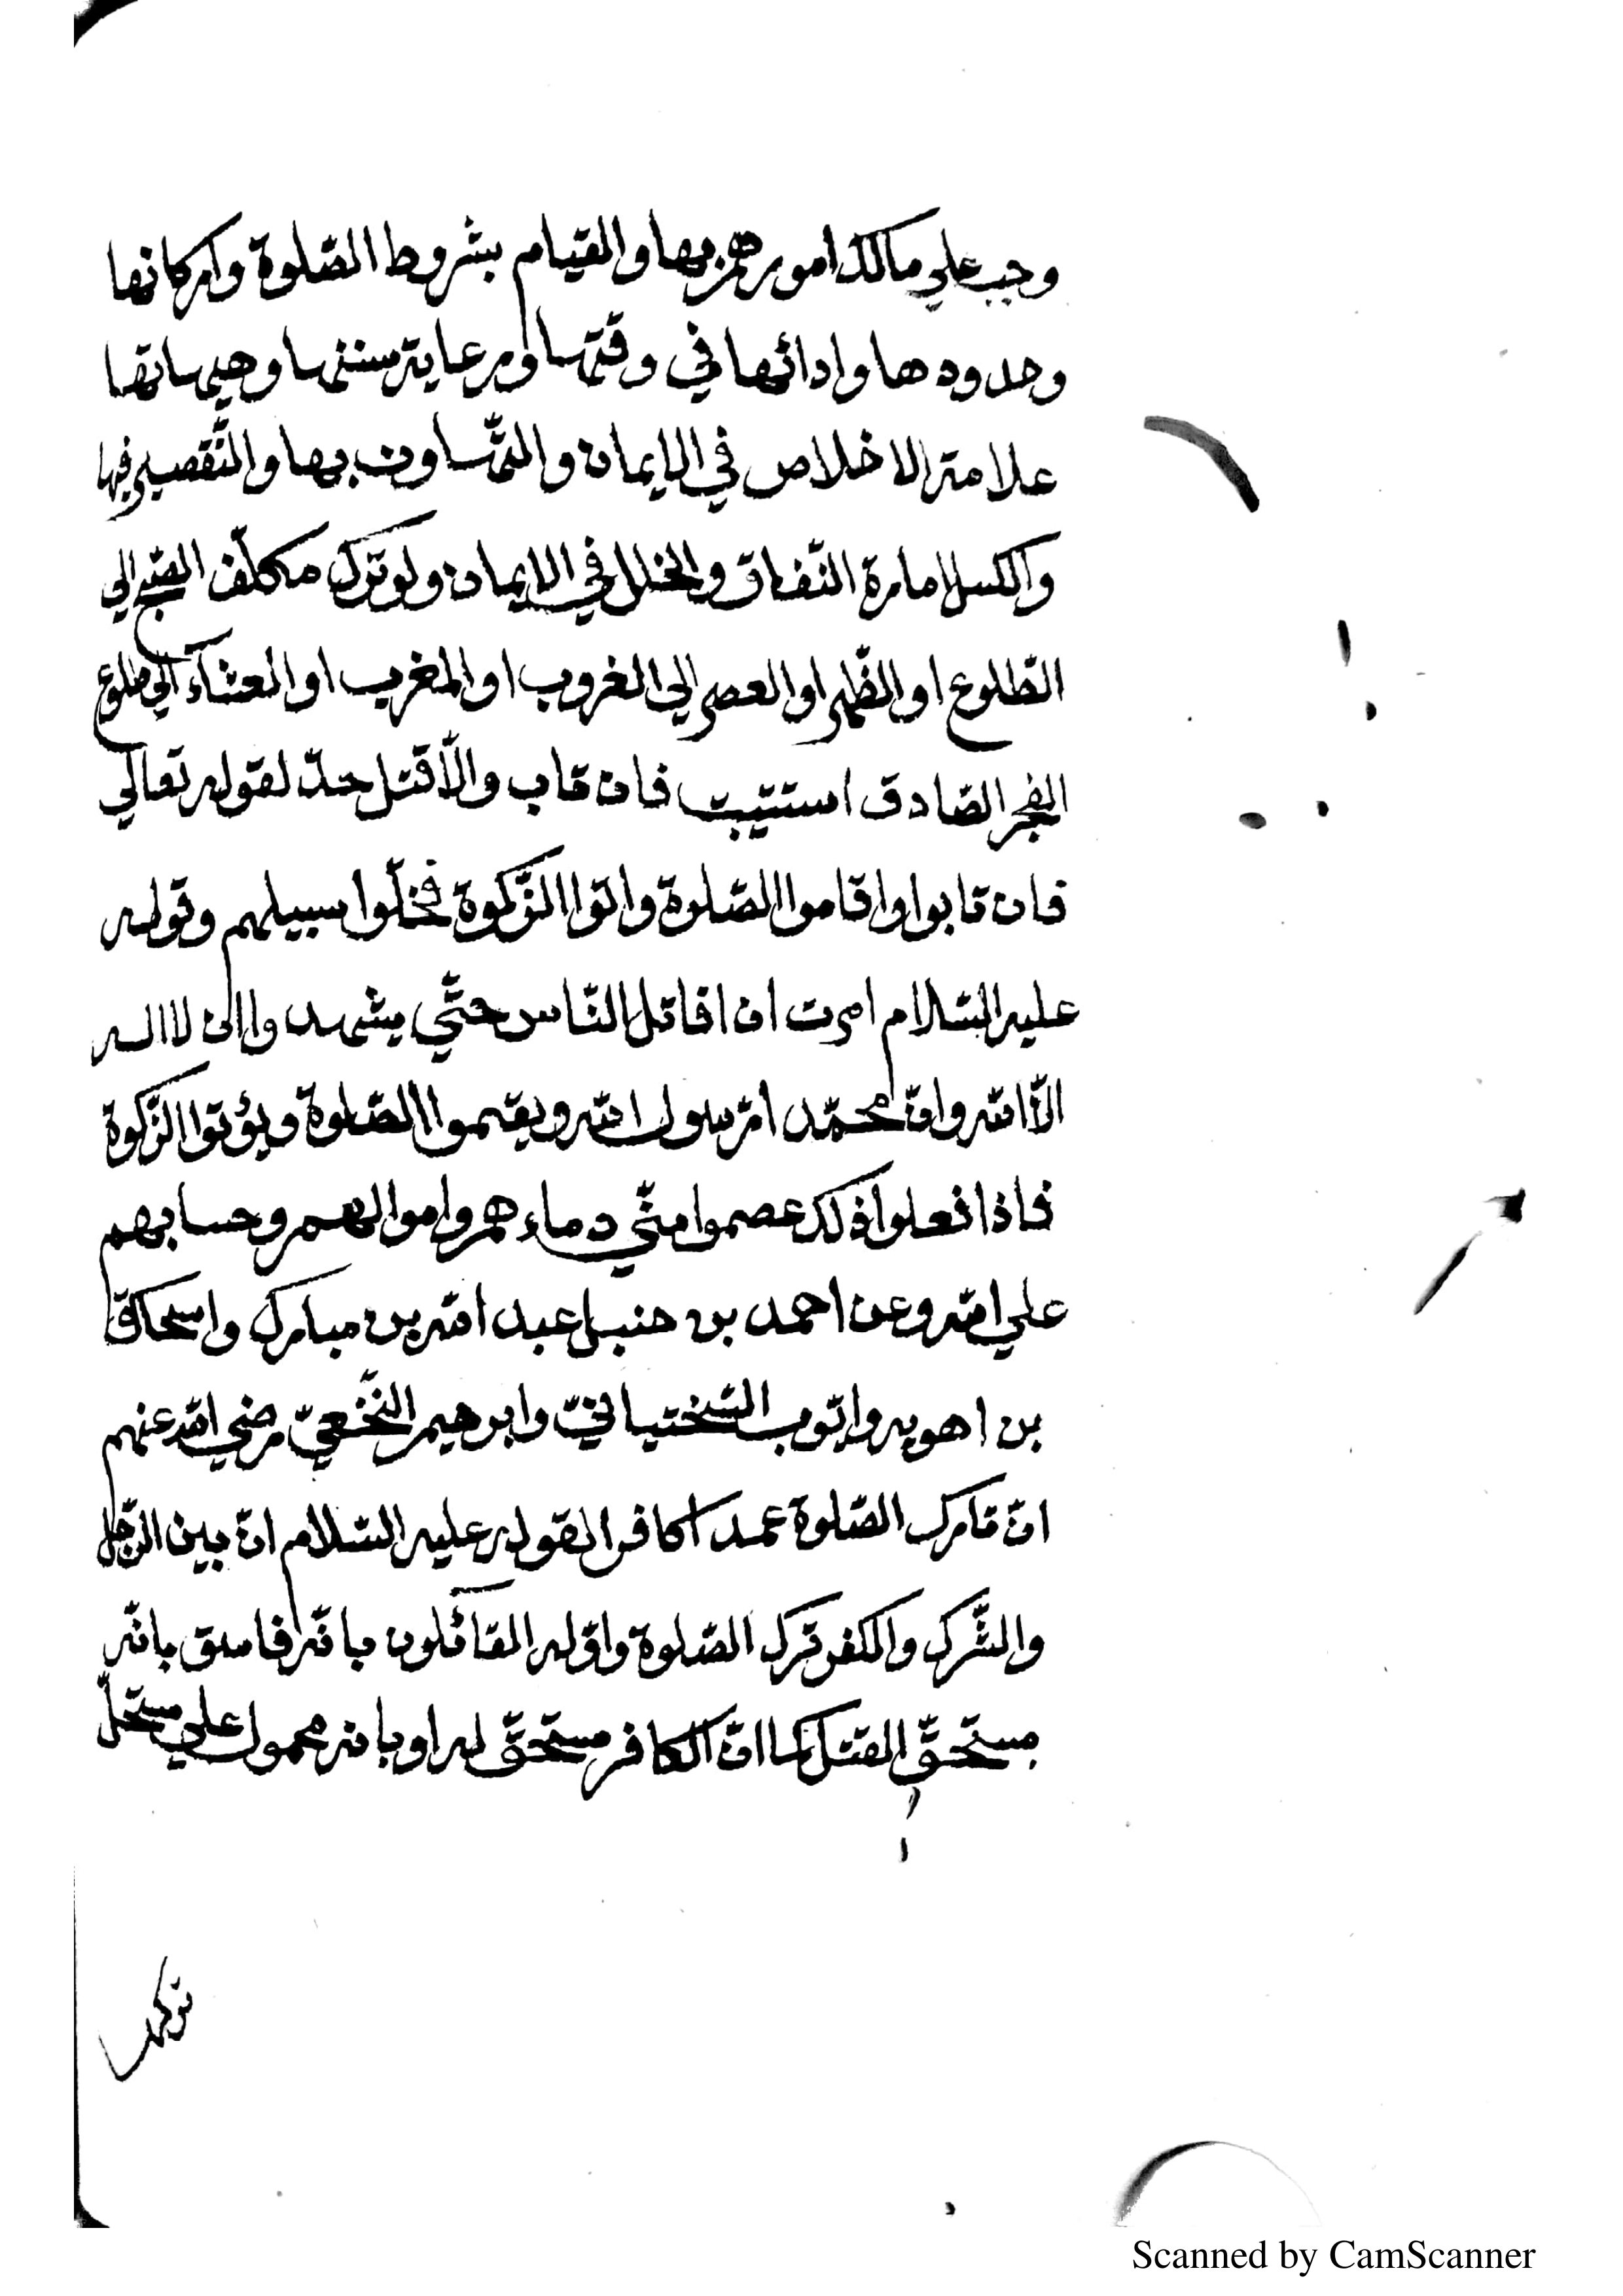 وجب علي مالك امورهم بها والقيام بشروط الصّلوة واركانها
وحدودها وادائها في وقتها ورعاية سننها وهيهاتها
علامة الاخلاص في الايمان والتّهاون بها والتّقصير فيها
والكسل امارة النّفاق والخلل في الايمان ولو ترك مكلّف الفجر الي
الطّلوع او الظّهر او العصر الي الغروب او المغرب او العشاء الي طلوع
الفجر الصّادق استتيب فان تاب والّا قتل حدّ لقوله تعالي
فان تابوا واقاموا الصّلوة واتوا الزّكوة فخلّوا سبيلهم وقوله
عليه السّلام امرت ان اقاتل النّاس حتّي يشهدوا ان لا اله
الّا الله وانّ محمّدا رسول الله ويقيموا الصّلوة ويؤتوا الزّكوة
فاذا فعلوا ذلك عصموا منّي دماءهم واموالهم وحسابهم
علي الله وعن احمد بن حنبل عبد الله بن مبارك واسحاق
بن اهويه وايّوب السّختيانيّ وابرهيم النّخعيّ رضي الله عنهم
انّ تارك الصّلوة عمدا كافر لقوله عليه السّلام انّ بين الرّجل
والشّرك والكفر ترك الصّلوة واوّله القائلون بانّه فاسق بانّه
مستحقّ القتل كما انّ الكافر مستحقّ له او بانه محمول علي مستحلّ